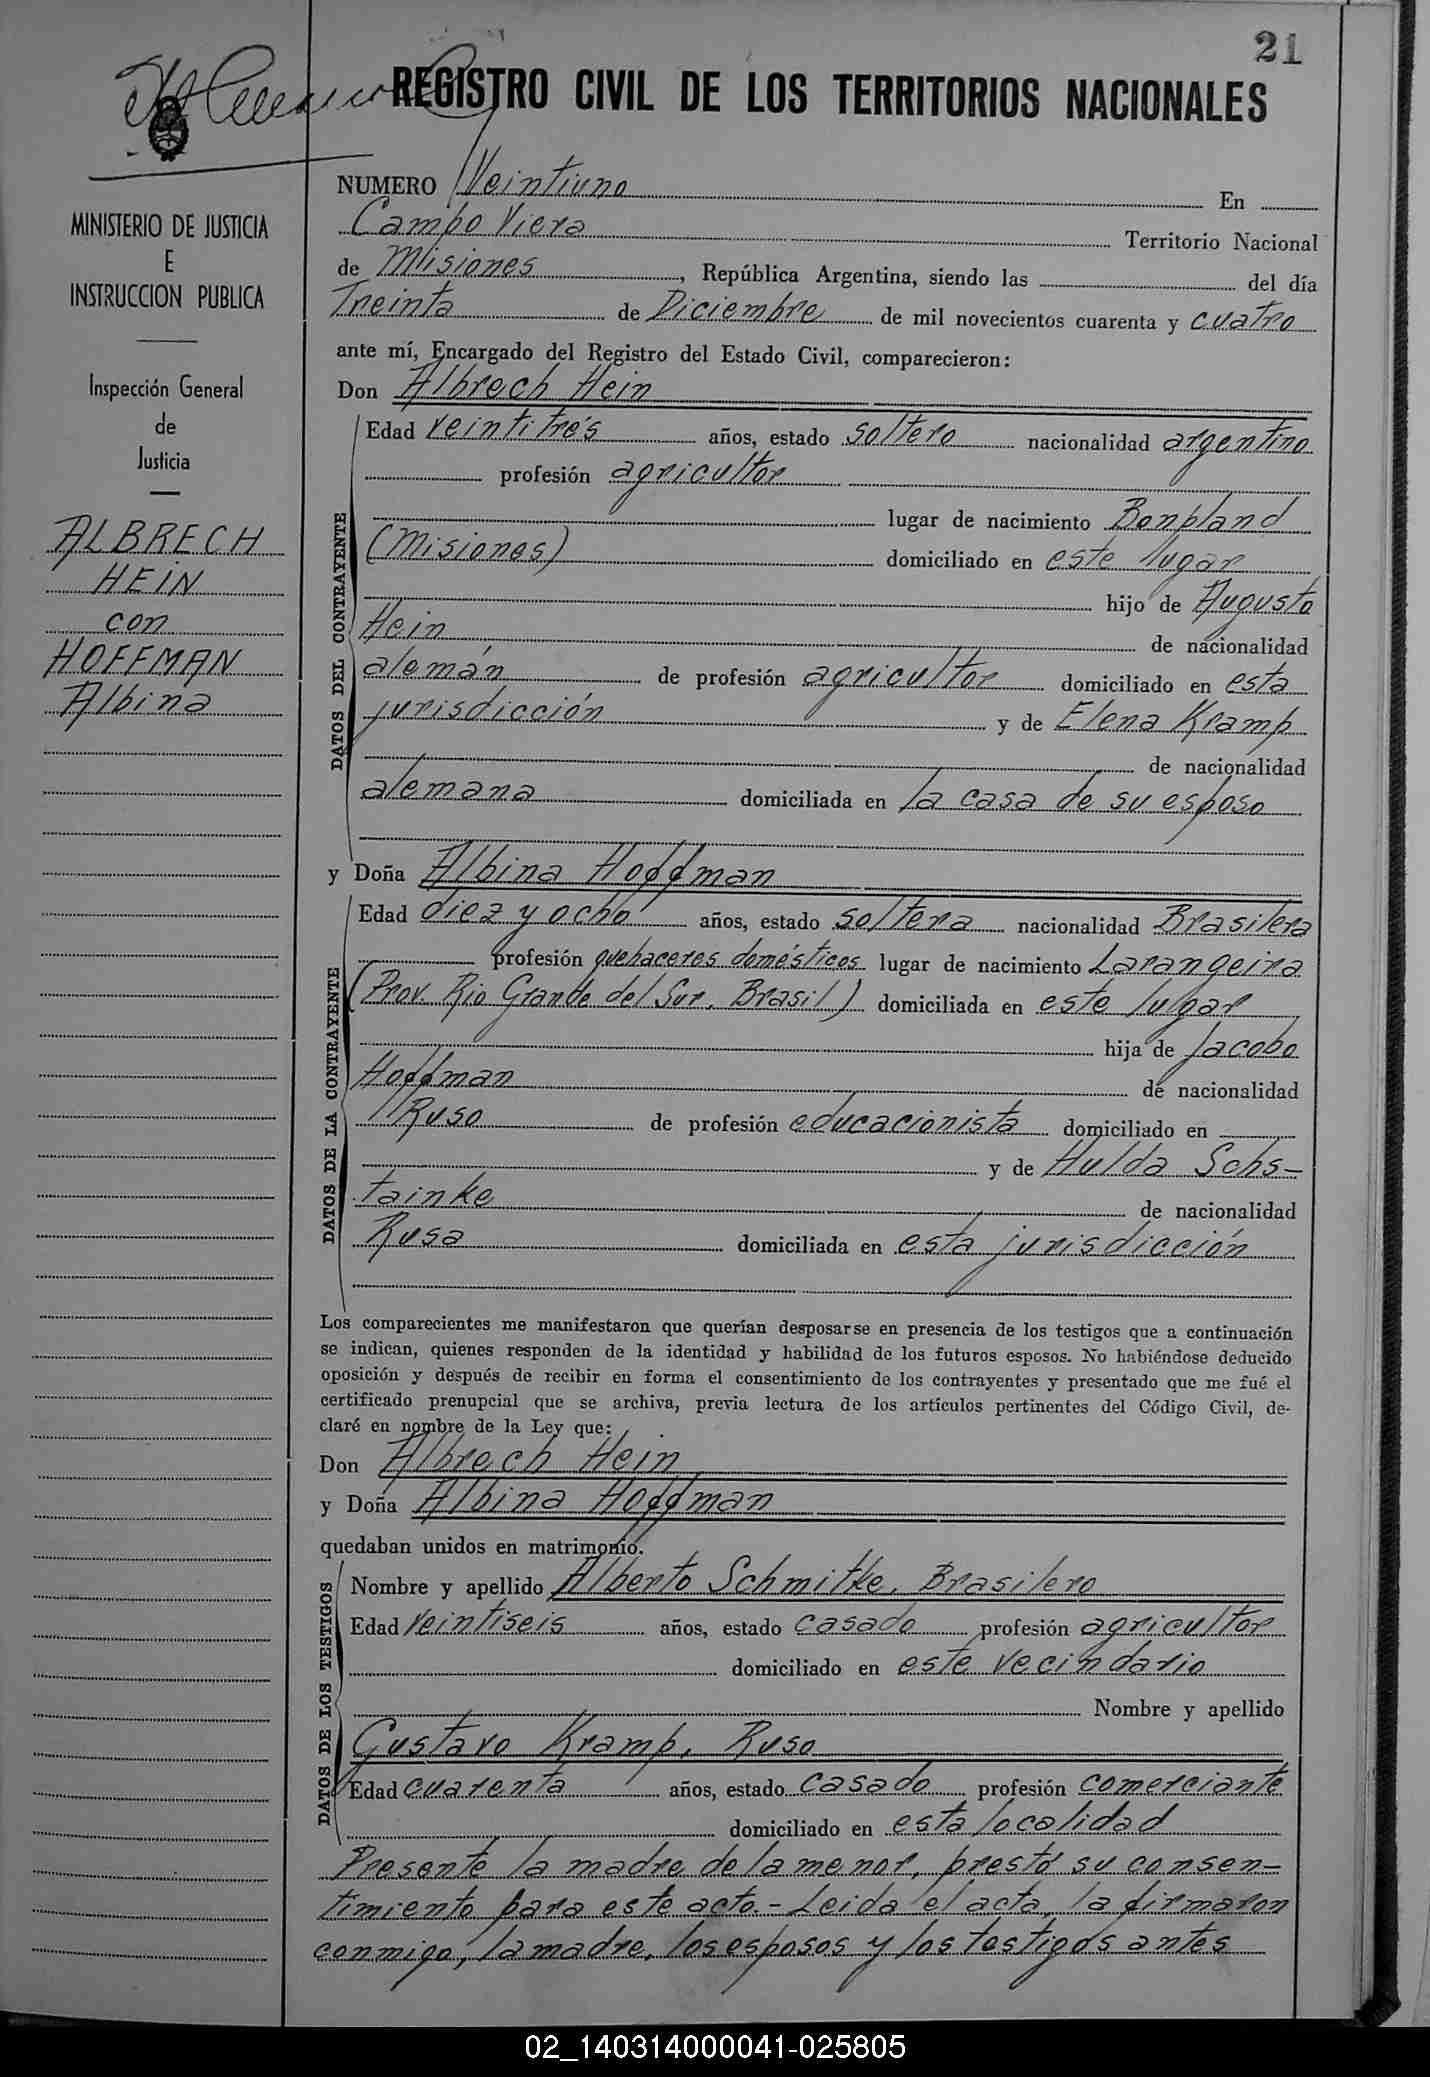 21
REGISTRO CIVIL DE LOS TERRITORIOS NACIONALES
MINISTERIO DE JUSTICIA
E
INSTRUCCION PUBLICA
Inspección General
de
Justicia
ALBRECH
HEIN
con
HOFFMAN
Albina
NUMERO Veintiuno En
Campo Viera Territorio Nacional
de Misiones, República Argentina, siendo las del día
Treinta de Diciembre de mil novecientos cuarenta y cuatro
ante mí, Encargado del Registro del Estado Civil, comparecieron:
Don Albrech Hein
DATOS DEL CONTRAYENTE
Edad veintitrés años, estado soltero nacionalidad argentino
profesión agricultor
lugar de nacimiento Bonpland
(Misiones) domiciliado en este lugar
hijo de Augusto
Hein de nacionalidad
alemán de profesión agricultor domiciliado en esta
jurisdicción y de Elena Kramp
de nacionalidad
alemana domiciliada en la casa de su esposo
y Doña Albina Hoffman
DATOS DE LA CONTRAYENTE
Edad diez y ocho años, estado soltera nacionalidad Brasilera
profesión quehaceres domésticos lugar de nacimiento Larangeira
(Prov. Rio Grande del Sur, Brasil) domiciliada en este lugar
hija de Jacobo
Hoffman de nacionalidad
Ruso de profesión educacionista domiciliado en
y de Hulda Sohs-
tainke de nacionalidad
Rusa domiciliada en esta jurisdicción
Los comparecientes me manifestaron que querían desposarse en presencia de los testigos que a continuación
se indican, quienes responden de la identidad y habilidad de los futuros esposos. No habiéndose deducido
oposición y después de recibir en forma el consentimiento de los contrayentes y presentado que me fué el
certificado prenupcial que se archiva, previa lectura de los artículos pertinentes del Código Civil, de-
claré en nombre de la Ley que:
Don Albrech Hein
y Doña Albina Hoffman
quedaban unidos en matrimonio.
DATOS DE LOS TESTIGOS
Nombre y apellido Alberto Schmitke, Brasilero
Edad veintiseis años, estado casado profesión agricultor
domiciliado en este vecindario
Nombre y apellido
Gustavo Kramp, Ruso
Edad cuarenta años, estado casado profesión comerciante
domiciliado en esta localidad
Presente la madre de la menor, prestó su consen-
timiento para este acto.- Leida el acta, la firmaron
conmigo, la madre, los esposos y los testigos antes
02_140314000041-025805